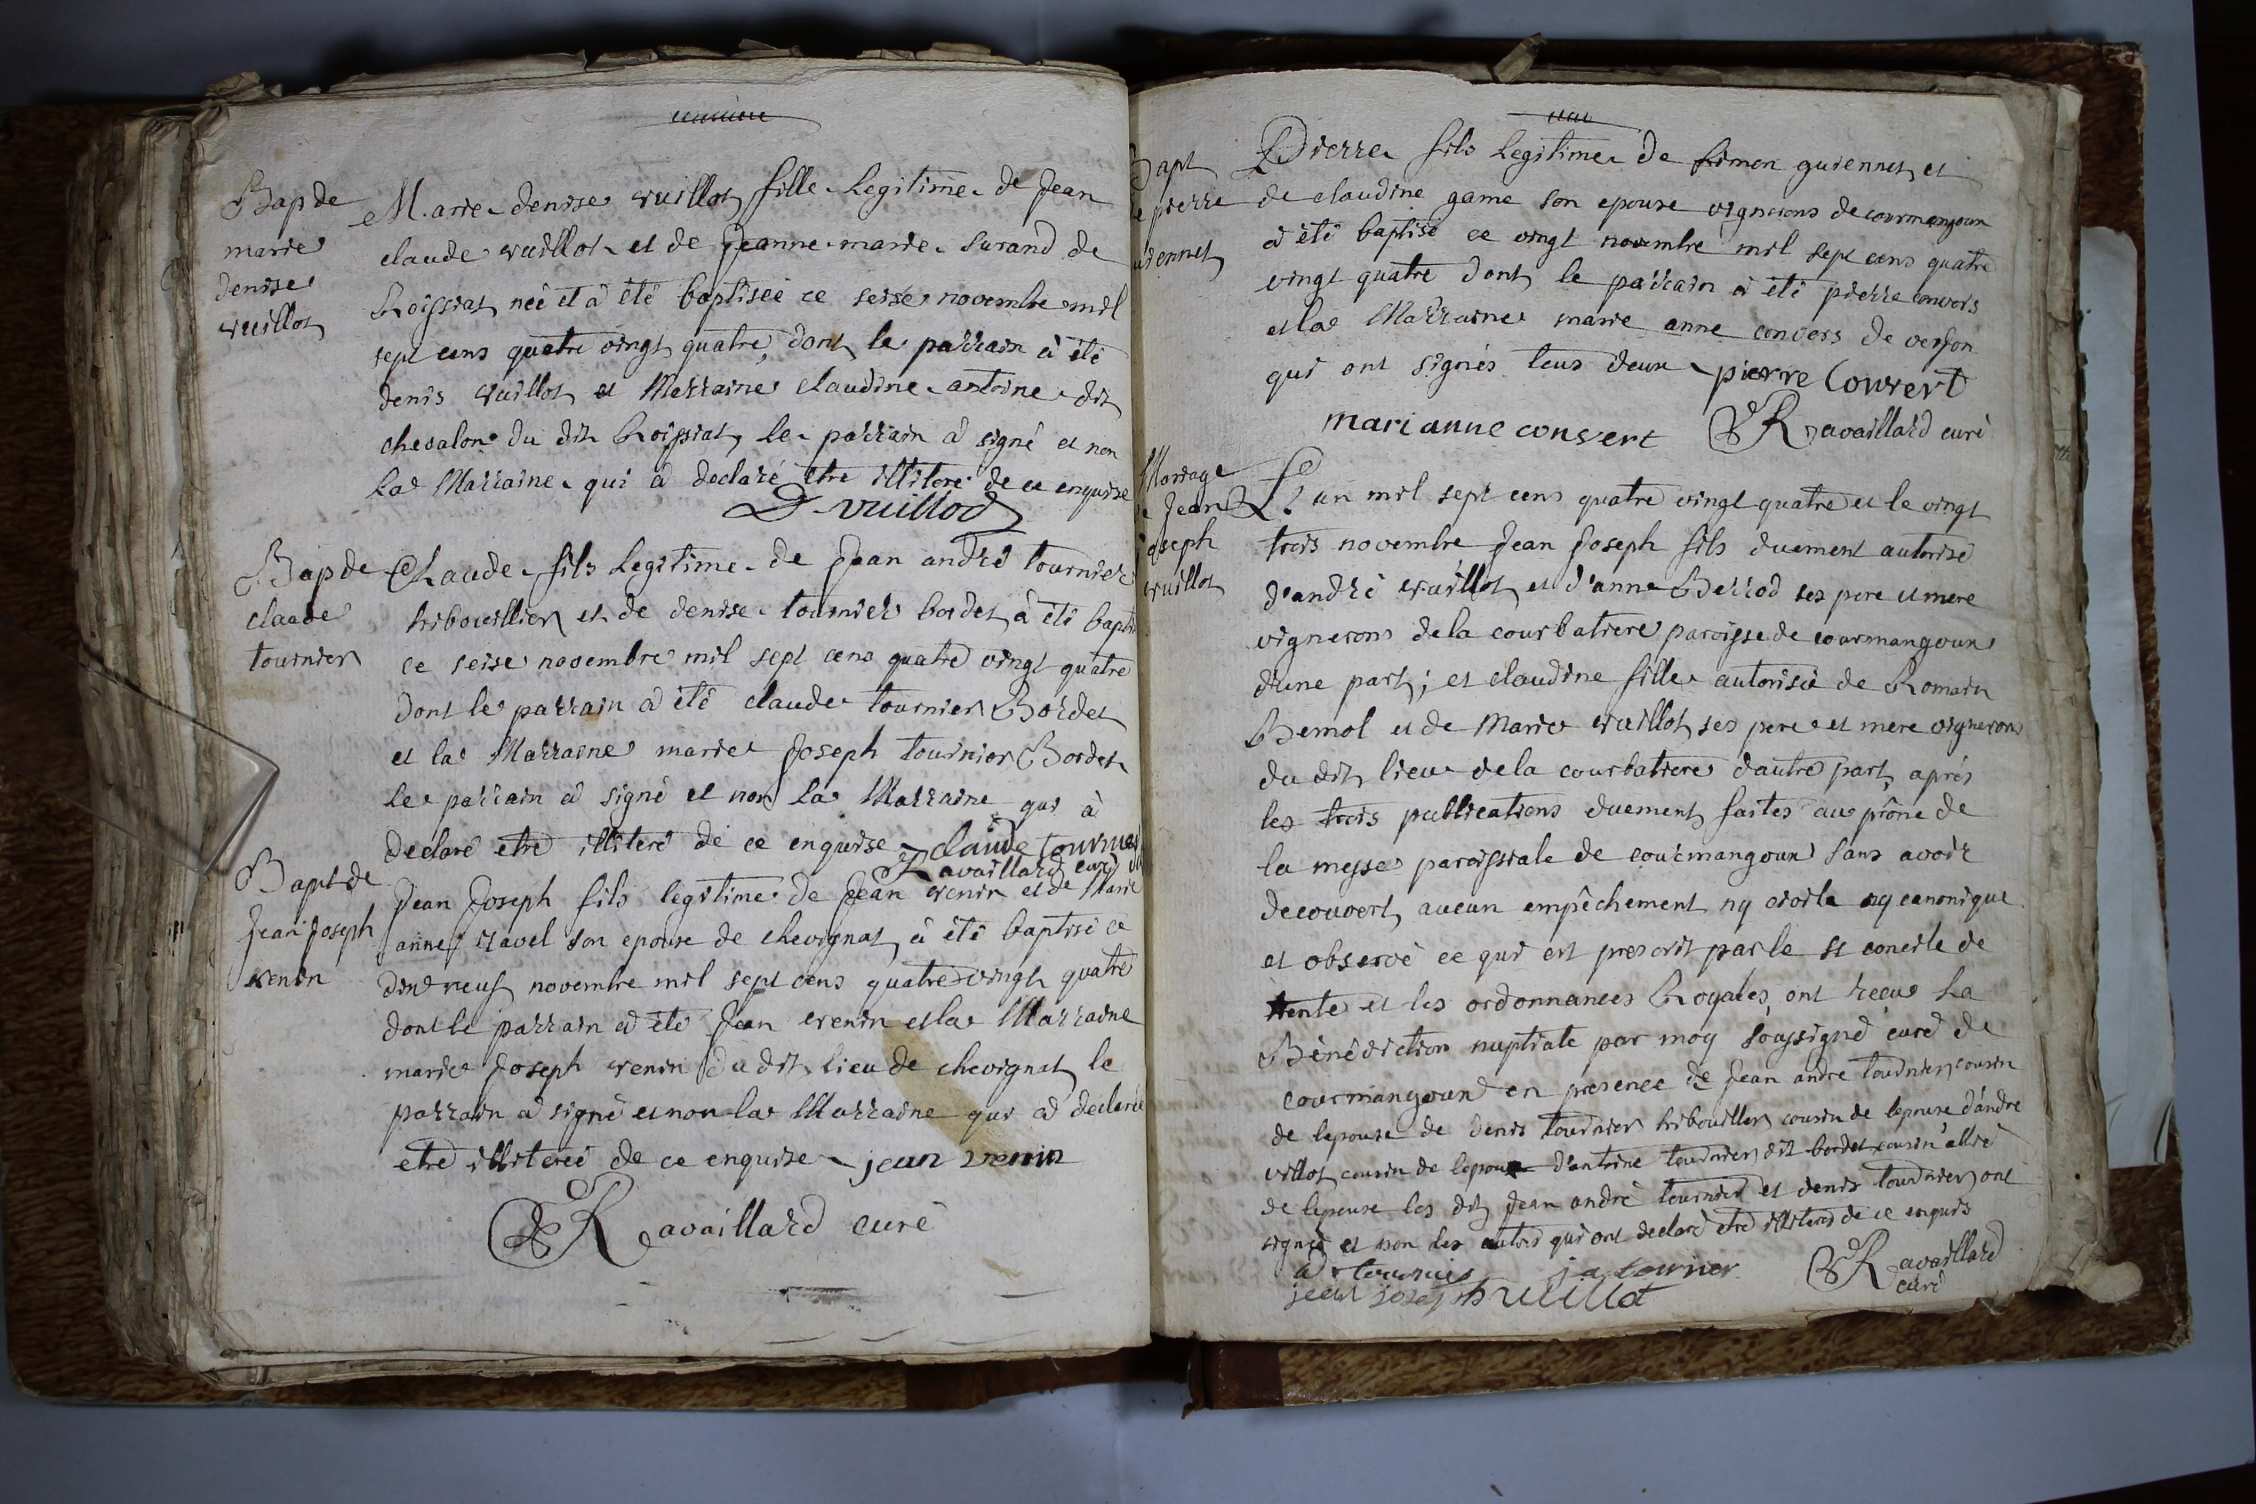 Bap de
marie
denise
vuillot
Marie denise vuillot fille Legitime de Jean
claude vuillot et de Jeanne marie Surand de
Roissiat née et à été baptisée ce seise novembre mil
sept cens quatre vingt quatre, dont le parrain à été
denis vuillot et Marraine claudine antoine dit
chevalon du dit Roissiat, le parrain à signé et non
La Marraine qui à declaré etre illiteré de ce enquise
D. vuillod
Bap de
claude
tournier
Claude fils Legitime de Jean andré tournier
hibouillier et de denise tournier bordet à été bapti
ce seise novembre mil sept cens quatre vingt quatre
dont le parrain à été claude tournier Bordet
et la Marraine marie Joseph tournier Bordet
le parrain à signé et non la Marraine qui à
declaré etre illiteré de ce enquise claude tournier
Ravaillard curé
Bapt de
Jean Joseph
venin
Jean Joseph fils legitime de Jean venin et de Marie
anne ravel son epouse de chevignat à été baptisé ce
dix neuf novembre mil sept cens quatre vingt quatre
dont le parrain à été Jean venin et la Marraine
marie Joseph venin du dit lieu de chevignat le
parrain à signé et non la Marraine qui à declaré
etre illiterée de ce enquise jean venin
Ravaillard curé
Bapt
e pierre
uiennet
Pierre fils Legitime de Simon guiennet et
de claudine game son epouse vignerons de courmangoux
à été baptisé ce vingt novembre mil sept cens quatre
vingt quatre dont le parrain à été pierre convers
et la Marraine marie anne convers de verjon
qui ont signés tous deux pierre Convert
mari anne convert Ravaillard curé
Mariage
e Jean
Joseph
vuillot
L'an mil sept cens quatre vingt quatre et le vingt
trois novembre Jean Joseph fils duement autorisé
d'andré vuillot et d'anne Berrod ses pere et mere
vignerons de la courbatiere paroisse de courmangoux
d'une part; et claudine fille autorisée de Romain
Bemol et de Marie vuillot ses pere et mere vignerons
du dit lieu de la courbatiere d'autre part, après
les trois publications duement faites au prône de
la messe paroissiale de courmangoux sans avoir
decouvert aucun empêchement ny civile ny canonique
et observé ce qui est prescrit par le st concile de
trente et les ordonnances Royales, ont reçeu La
Bénédiction nuptiale par moy soussigné curé de
courmangoux en presence de Jean andre tournier cousin
de lepouse de denis tournier hibouillier cousin de lepouse d'andre
villot cousin de lepoux d'antoine tournier dit bordet cousin allié
de lepouse les dit Jean andré tournier et denis tournier ont
signé et non les autres qui ont declaré etre illiterés de ce enquis
d tournier j a tournier Ravaillard
curé
jean joseph vuillot